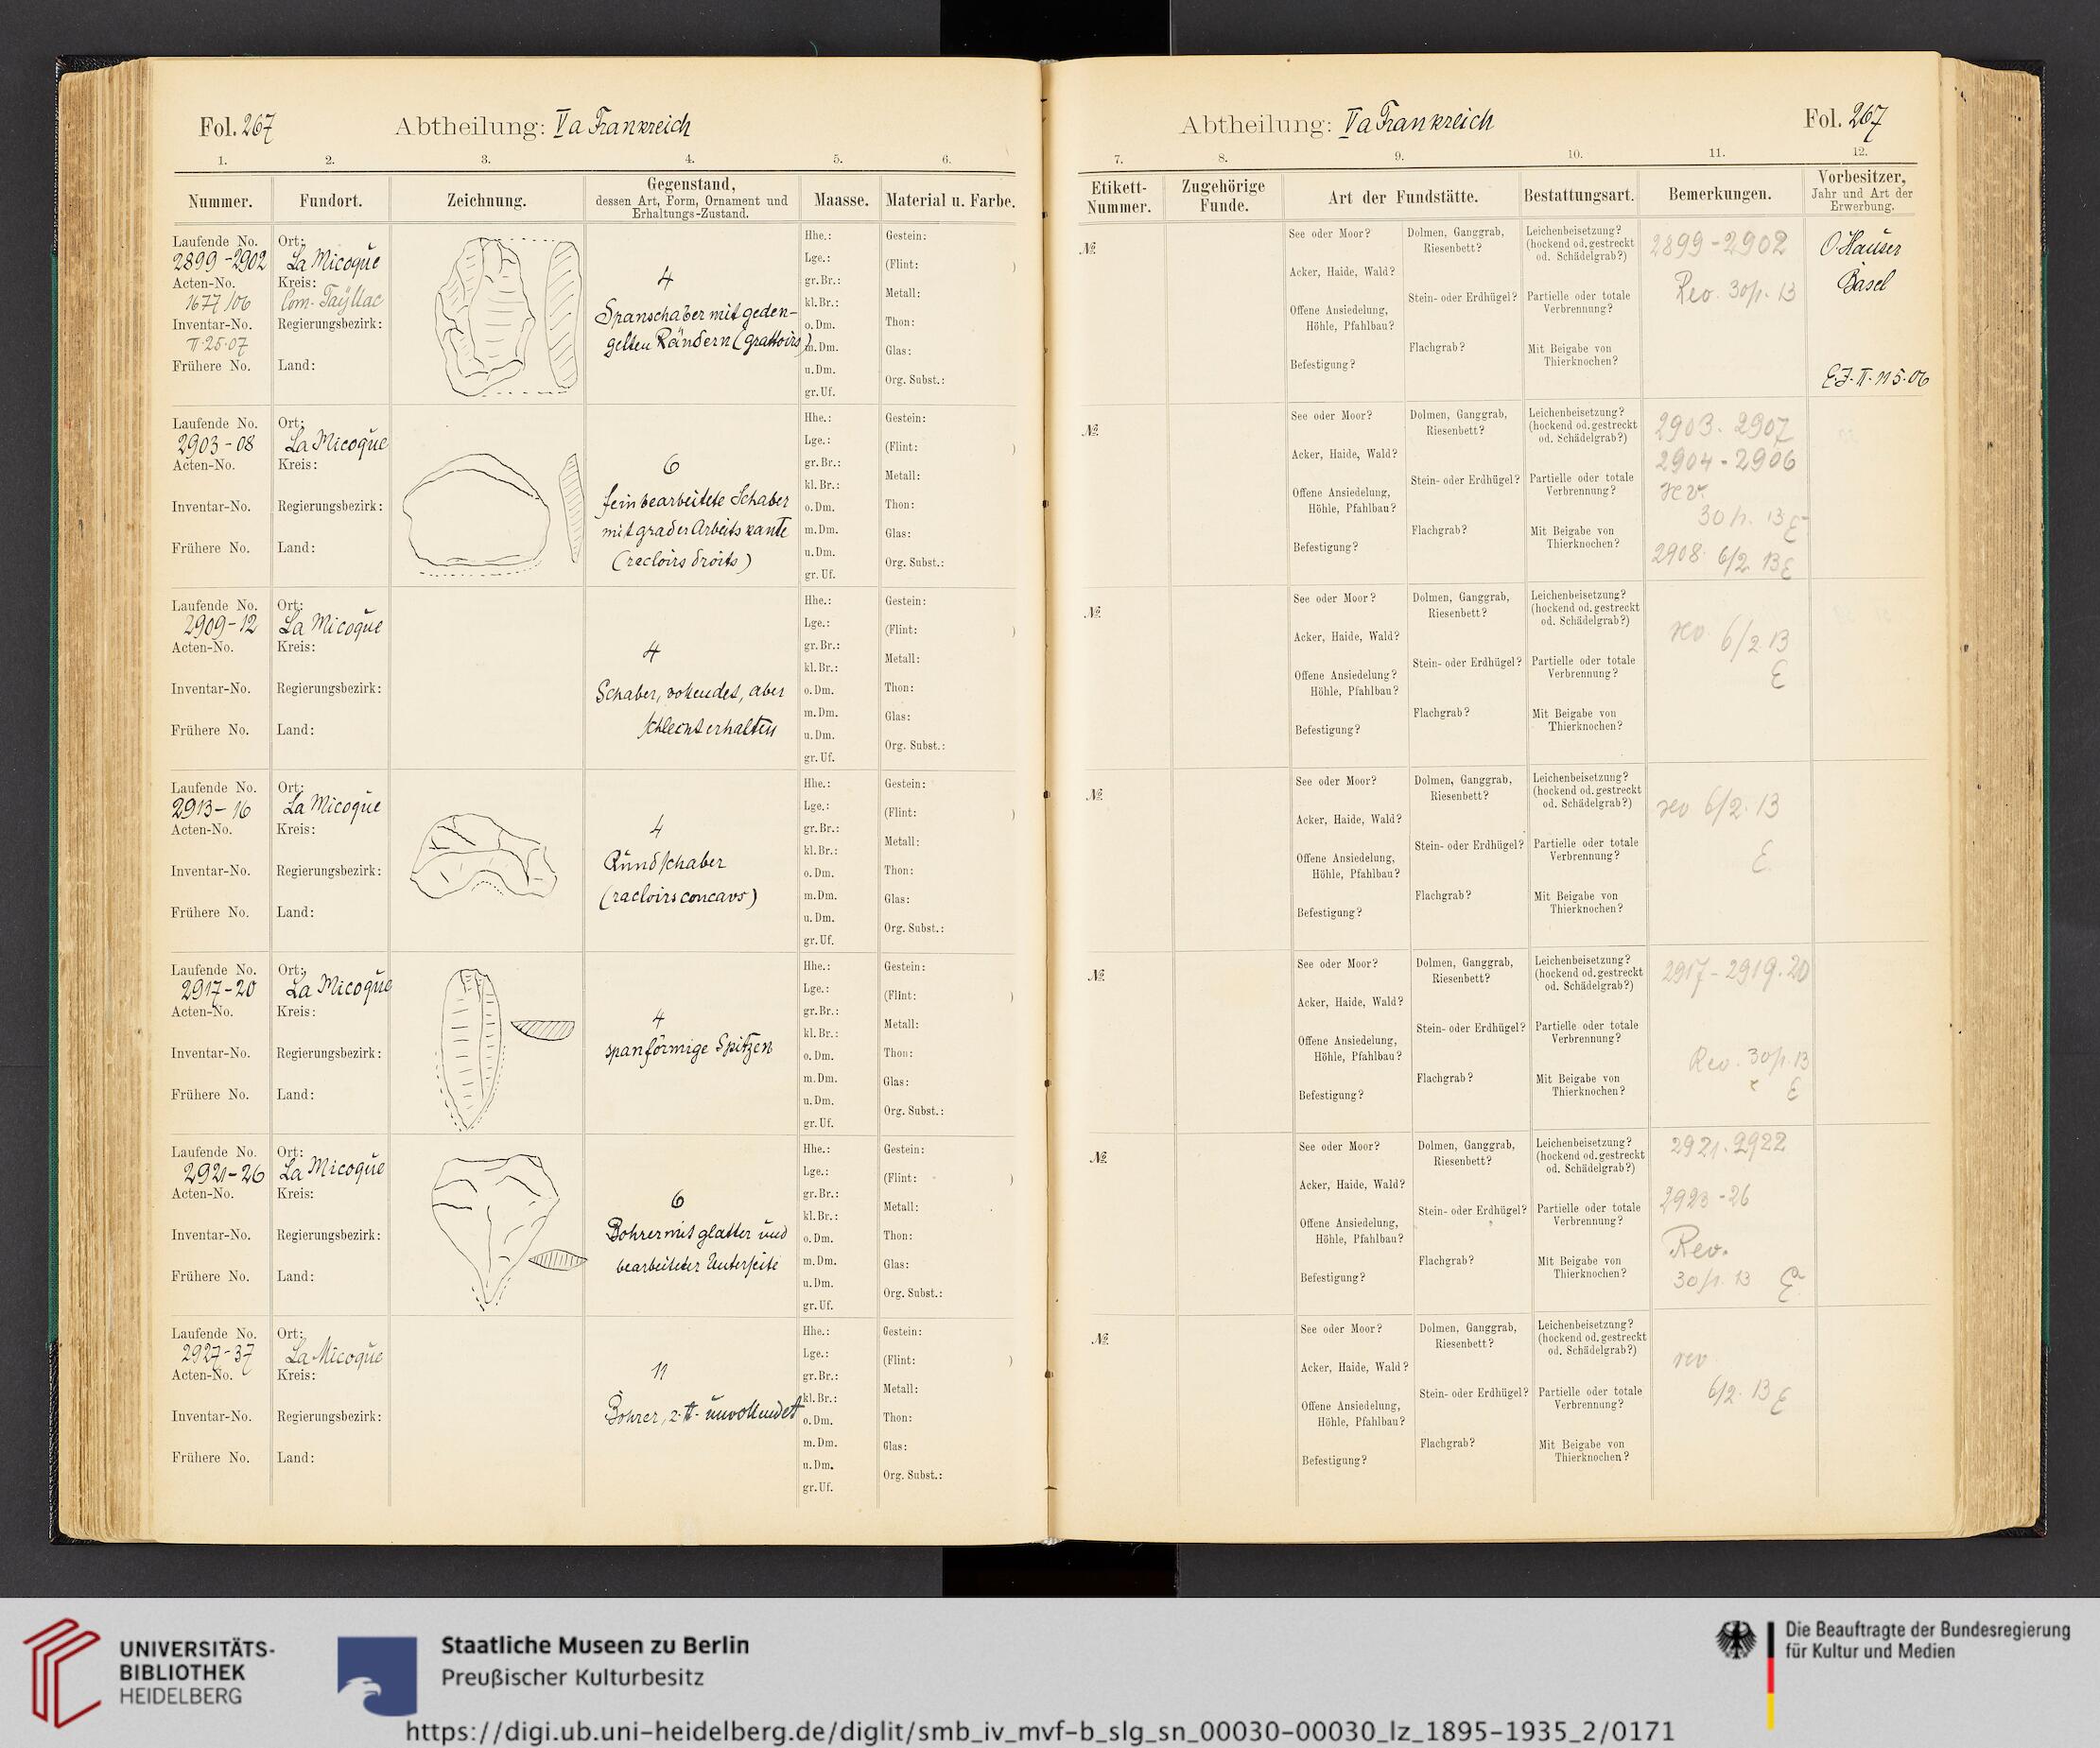 Fol. 267
Abtheilung: Va Frankreich
1. 2. 3. 4. 5. 6.
Nummer. Fundort. Zeichnung. Gegenstand, dessen Art, Form, Ornament und Erhaltungs-Zustand. Maasse. Material u. Farbe.
Laufende No.
2899-2902
Acten-No.
1677/06
Inventar-No.
II.25.07
Frühere No.
Ort:
La Micoque
Kreis:
Com. Tayllac
Regierungsbezirk:
Land:
4
Spanschaber mit geden-
gelten Rändern (grattoirs)
Hhe.:
Lge.:
gr. Br.:
kl. Br.:
o. Dm.
m. Dm.
u. Dm.
gr. Uf.
Gestein:
(Flint: )
Metall:
Thon:
Glas:
Org. Subst.:
Laufende No.
2903-08
Acten-No.
Inventar-No.
Frühere No.
Ort:
La Micoque
Kreis:
Regierungsbezirk:
Land:
6
feinbearbeitete Schaber
mit grader Arbeitskante
(racloirs droits)
Hhe.:
Lge.:
gr. Br.:
kl. Br.:
o. Dm.
m. Dm.
u. Dm.
gr. Uf.
Gestein:
(Flint: )
Metall:
Thon:
Glas:
Org. Subst.:
Laufende No.
2909-12
Acten-No.
Inventar-No.
Frühere No.
Ort:
La Micoque
Kreis:
Regierungsbezirk:
Land:
4
Schaber, vollendet, aber
schlecht erhalten
Hhe.:
Lge.:
gr. Br.:
kl. Br.:
o. Dm.
m. Dm.
u. Dm.
gr. Uf.
Gestein:
(Flint: )
Metall:
Thon:
Glas:
Org. Subst.:
Laufende No.
2913-16
Acten-No.
Inventar-No.
Frühere No.
Ort:
La Micoque
Kreis:
Regierungsbezirk:
Land:
4
Rundschaber
(racloirs concavs)
Hhe.:
Lge.:
gr. Br.:
kl. Br.:
o. Dm.
m. Dm.
u. Dm.
gr. Uf.
Gestein:
(Flint: )
Metall:
Thon:
Glas:
Org. Subst.:
Laufende No.
2917-20
Acten-No.
Inventar-No.
Frühere No.
Ort:
La Micoque
Kreis:
Regierungsbezirk:
Land:
4
spanförmige Spitzen
Hhe.:
Lge.:
gr. Br.:
kl. Br.:
o. Dm.
m. Dm.
u. Dm.
gr. Uf.
Gestein:
(Flint: )
Metall:
Thon:
Glas:
Org. Subst.:
Laufende No.
2921-26
Acten-No.
Inventar-No.
Frühere No.
Ort:
La Micoque
Kreis:
Regierungsbezirk:
Land:
6
Bohrer mit glatter und
bearbeiteter Unterseite
Hhe.:
Lge.:
gr. Br.:
kl. Br.:
o. Dm.
m. Dm.
u. Dm.
gr. Uf.
Gestein:
(Flint: )
Metall:
Thon:
Glas:
Org. Subst.:
Laufende No.
2927-37
Acten-No.
Inventar-No.
Frühere No.
Ort:
La Micoque
Kreis:
Regierungsbezirk:
Land:
11
Bohrer, z. tl. unvollendet
Hhe.:
Lge.:
gr. Br.:
kl. Br.:
o. Dm.
m. Dm.
u. Dm.
gr. Uf.
Gestein:
(Flint: )
Metall:
Thon:
Glas:
Org. Subst.:
Abtheilung: Va Frankreich
Fol. 267
7. 8. 9. 10. 11. 12.
Etikett-Nummer. Zugehörige Funde. Art der Fundstätte. Bestattungsart. Bemerkungen. Vorbesitzer, Jahr und Art der Erwerbung.
№
See oder Moor?
Acker, Haide, Wald?
Offene Ansiedelung,
Höhle, Pfahlbau?
Befestigung?
Dolmen, Ganggrab,
Riesenbett?
Stein- oder Erdhügel?
Flachgrab?
Leichenbeisetzung?
(hockend od. gestreckt
od. Schädelgrab?)
Partielle oder totale
Verbrennung?
Mit Beigabe von
Thierknochen?
2899-2902
Rev. 30/1. 13
O Hauser
Basel
E.J. II. 115.06
№
See oder Moor?
Acker, Haide, Wald?
Offene Ansiedelung,
Höhle, Pfahlbau?
Befestigung?
Dolmen, Ganggrab,
Riesenbett?
Stein- oder Erdhügel?
Flachgrab?
Leichenbeisetzung?
(hockend od. gestreckt
od. Schädelgrab?)
Partielle oder totale
Verbrennung?
Mit Beigabe von
Thierknochen?
2903. 2907
2904-2906
rev.
30/1. 13 E
2908. 6/2 13 E
№
See oder Moor?
Acker, Haide, Wald?
Offene Ansiedelung?
Höhle, Pfahlbau?
Befestigung?
Dolmen, Ganggrab,
Riesenbett?
Stein- oder Erdhügel?
Flachgrab?
Leichenbeisetzung?
(hockend od. gestreckt
od. Schädelgrab?)
Partielle oder totale
Verbrennung?
Mit Beigabe von
Thierknochen?
rev 6/2 13
E
№
See oder Moor?
Acker, Haide, Wald?
Offene Ansiedelung,
Höhle, Pfahlbau?
Befestigung?
Dolmen, Ganggrab,
Riesenbett?
Stein- oder Erdhügel?
Flachgrab?
Leichenbeisetzung?
(hockend od. gestreckt
od. Schädelgrab?)
Partielle oder totale
Verbrennung?
Mit Beigabe von
Thierknochen?
rev 6/2. 13
E
№
See oder Moor?
Acker, Haide, Wald?
Offene Ansiedelung,
Höhle, Pfahlbau?
Befestigung?
Dolmen, Ganggrab,
Riesenbett?
Stein- oder Erdhügel?
Flachgrab?
Leichenbeisetzung?
(hockend od. gestreckt
od. Schädelgrab?)
Partielle oder totale
Verbrennung?
Mit Beigabe von
Thierknochen?
2917-2919. 20
Rev. 30/1. 13
E
№
See oder Moor?
Acker, Haide, Wald?
Offene Ansiedelung,
Höhle, Pfahlbau?
Befestigung?
Dolmen, Ganggrab,
Riesenbett?
Stein- oder Erdhügel?
Flachgrab?
Leichenbeisetzung?
(hockend od. gestreckt
od. Schädelgrab?)
Partielle oder totale
Verbrennung?
Mit Beigabe von
Thierknochen?
2921. 2922
2923-26
Rev.
30/1. 13 E
№
See oder Moor?
Acker, Haide, Wald?
Offene Ansiedelung,
Höhle, Pfahlbau?
Befestigung?
Dolmen, Ganggrab,
Riesenbett?
Stein- oder Erdhügel?
Flachgrab?
Leichenbeisetzung?
(hockend od. gestreckt
od. Schädelgrab?)
Partielle oder totale
Verbrennung?
Mit Beigabe von
Thierknochen?
rev
6/2. 13 E
UNIVERSITÄTS-
BIBLIOTHEK
HEIDELBERG
Staatliche Museen zu Berlin
Preußischer Kulturbesitz
Die Beauftragte der Bundesregierung
für Kultur und Medien
https://digi.ub.uni-heidelberg.de/diglit/smb_iv_mvf-b_slg_sn_00030-00030_lz_1895-1935_2/0171